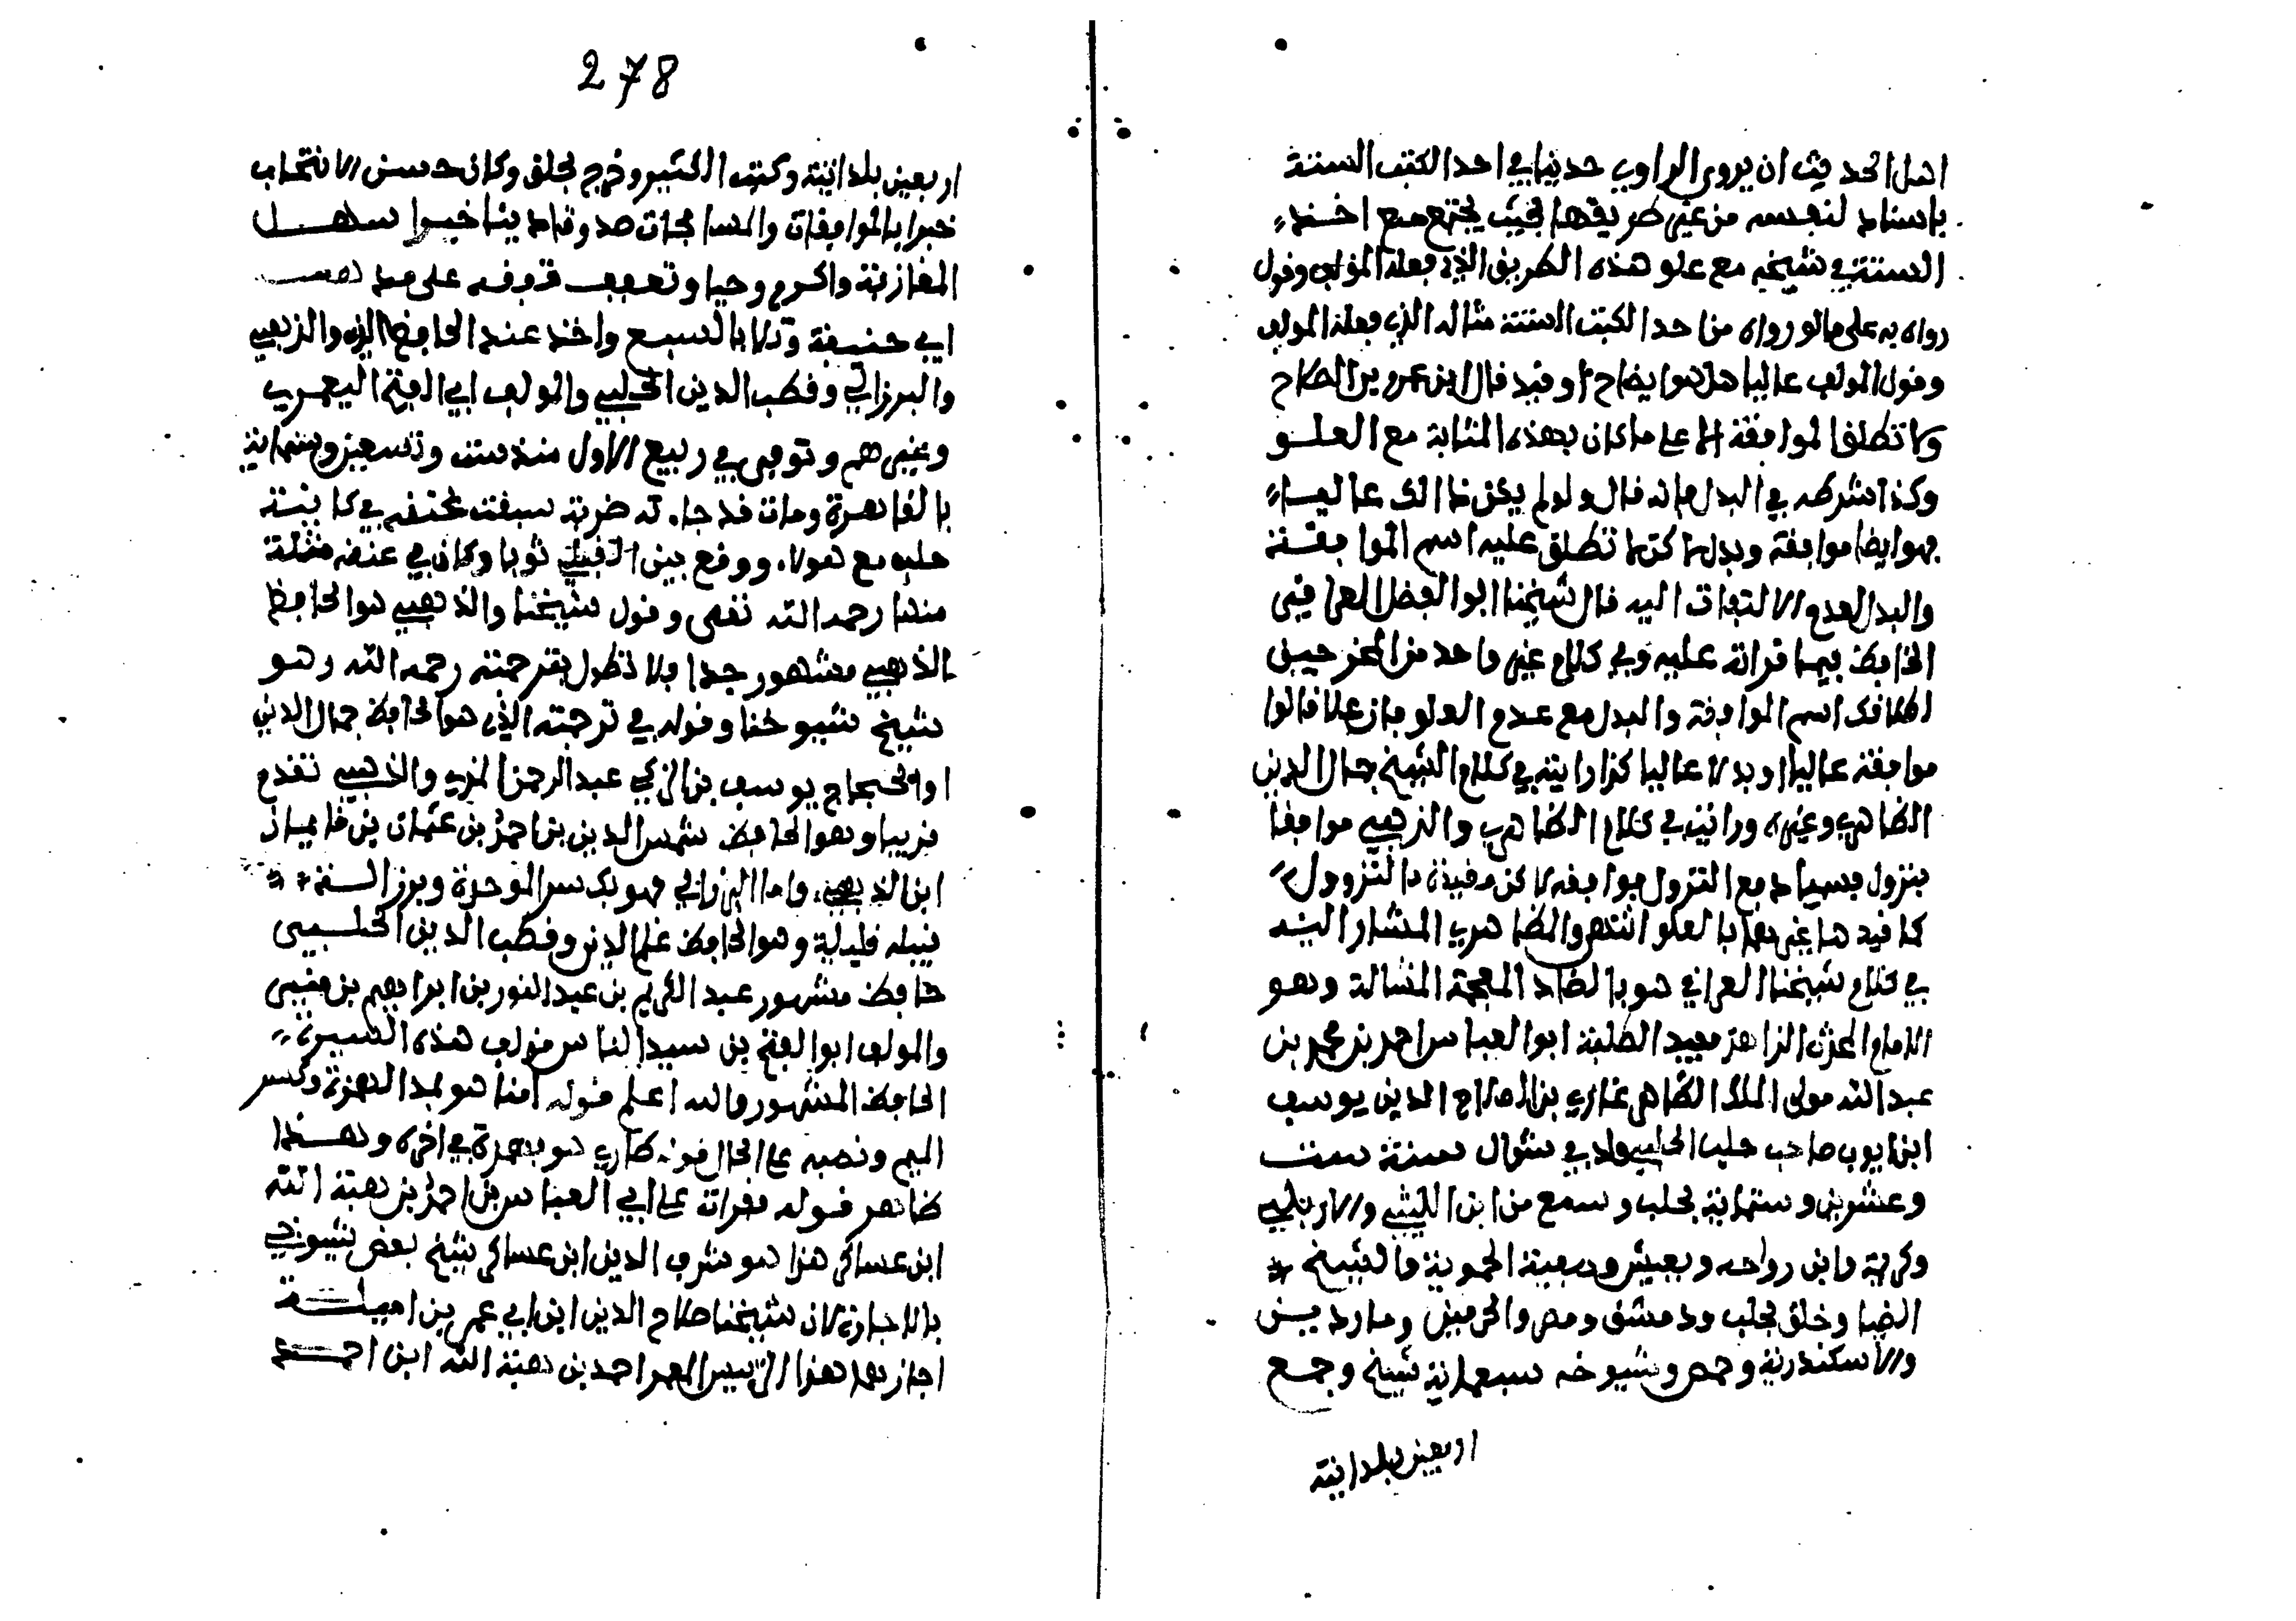 اهل الحديث ان يروي الراوي حديثا في احد الكتب الستة
باسناد لنفسه من غير طريقها بحيث يجتمع مع احد
الستة في شيخه مع علو هذه الطريق الذي فعله المؤلف وقول
رواه به على ما لو رواه من احد الكتب الستة مثاله الذي فعله المولف
وقول المولف عاليا هل هو ايضاح او قيد قال ابن عمرو بن الصلاح
ولا تطلق الموافقة الا على ما كان بهذه المثابة مع العلو
وكذا شرطه في البدل فانه قال ولو لم يكن ذالك عاليا
فهو ايضا موافقة وبدل لاكن لا تطلق عليه اسم الموافقة
والبدل لعدم الالتفات اليه قال شيخنا ابو الفضل العراقي
الحافظ فيما قراته عليه وفي كلام غير واحد من المخرجين
اطلاق اسم الموافقة والبدل مع عدم العلو فان علا قالوا
موافقة عاليا او بدلا عاليا كذا رايته في كلام الشيخ جمال الدين
الظاهري وغيره ورايت في كلام الظاهري والذهبي موافقا
بنزول فسماه مع النزول موافقة لاكن مقيدة بالنزول
كما قيدها غيرهما بالعلو انتهى والظاهري المشار اليه
في كلام شيخنا العراقي هو بالظاد المعجمة المشالة وهو
الامام المحدث الزاهد مفيد الطلبة ابو العباس احمد بن محمد بن
عبد الله مولى الملك الظاهر غازي بن الصلاح الدين يوسف
ابن ايوب صاحب حلب الحلبي ولد في شوال سنة ست
وعشرين وستمائة بحلب وسمع من ابن اللتي والاربلي
وكريمة وابن رواحه ويعيش وصفية الحموية والشيخ
الضيا وخلق بحلب ودمشق ومصر والحرمين وماردين
والاسكندرية وحمص وشيوخه سبعمائة شيخ وجمع
اربعين بلدانية
278
اربعين بلدانية وكتب الكثير وخرج لخلق وكان حسن الانتخاب
خبيرا بالموافقات والمسا فحات صدوقا دينا خيرا سهل
العارية واكرم وحيا وتعفف على مذهب
ابي حنيفة وتلا بالسبع واخذ عنه الحافظ المزي والذهبي
والبرزالي وقطب الدين الحلبي والمولف ابي الفتح اليعمري
وغيرهم وتوفي في ربيع الاول سنة ست وتسعين وستمائة
بالقاهرة ومات فجا
حلب مع هولا ووقع بين ثوبا وكان في عنقه
منها رحمه الله تعلى وقول شيخنا والذهبي هو الحافظ
الذهبي مشهور جدا فلا نطول بترجمته رحمه الله وهو
شيخ شيوخنا وقوله في ترجمته المزي هو الحافظ جمال الدين
ابو الحجاج يوسف بن الزكي عبد الرحمن المزي والذهبي تقدم
قريبا وهو الحافظ شمس الدين بن احمد بن عثمان بن قايماز
ابن الذهبي، واما البرزالي فهو بكسر الموحدة وبرزالة
قبيله قليلة وهو الحافظ علم الدين وقطب الدين الحلبي
حافظ مشهور عبد الكريم بن عبد النور بن ابراهيم بن منير
والمولف ابو الفتح بن سيد الناس مؤلف هذه السيرة
الحافظ المشهور والله اعلم قوله امنا هو بمد الهمزة وكسر
الميم ونصبه على الحال قوله طاري هو بهمزة في اخره وهذا
ظاهر قوله بقراة على ابي العباس بن احمد بن هبة الله
ابن عساكر هذا هو شرف الدين ابن عساكر شيخ بعض شيوخي
بالاجازة كان شيخنا صلاح الدين ابن ابي عمر بن اميلة
اجاز لهما هذا الرئيس المعمر احمد بن هبة الله ابن احمد